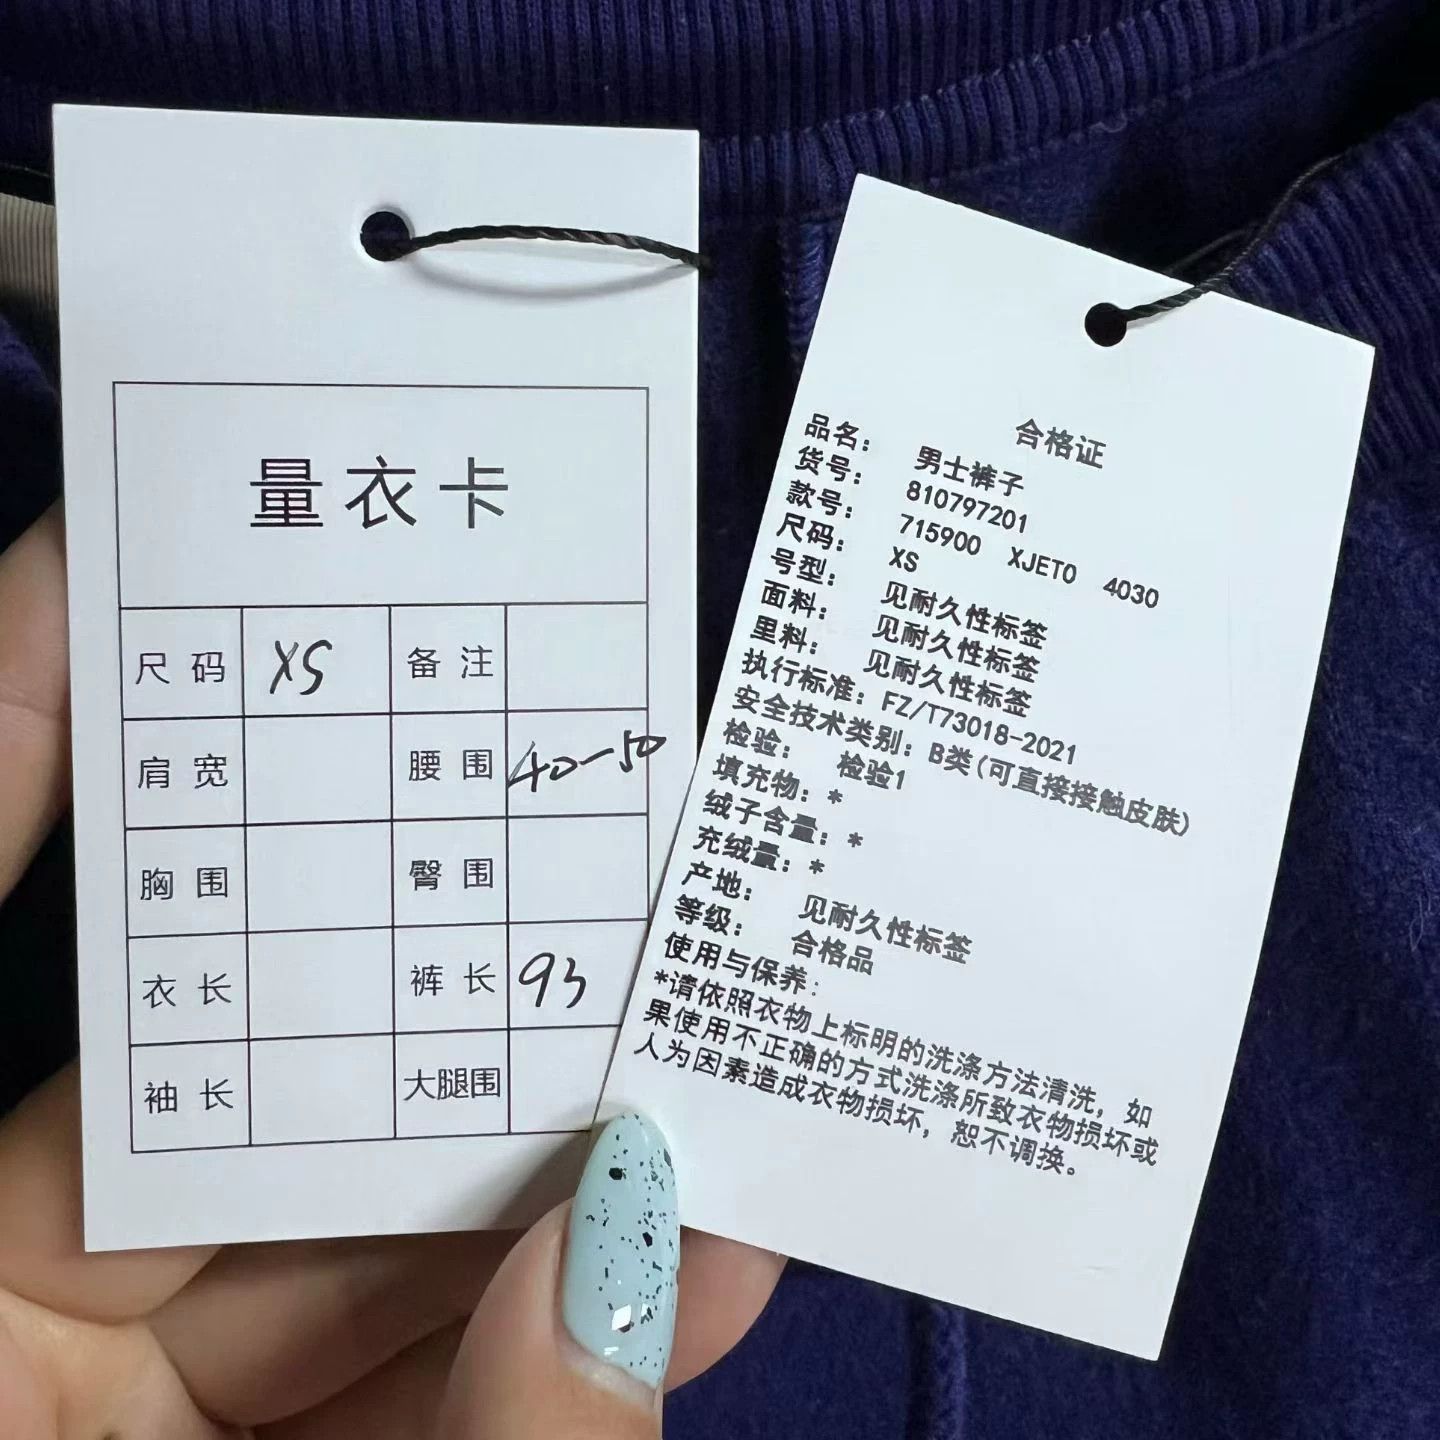 量衣卡
尺码 XS 备注
肩宽 腰围 40-50
胸围 臀围
衣长 裤长 93
袖长 大腿围
合格证
品名: 男士裤子
货号: 810797201
款号: 715900 XJETO 4030
尺码: XS
号型: 见耐久性标签
面料: 见耐久性标签
里料: 见耐久性标签
执行标准: FZ/T73018-2021
安全技术类别: B类(可直接接触皮肤)
检验: 检验1
填充物: *
绒子含量: *
充绒量: *
产地: 见耐久性标签
等级: 合格品
使用与保养:
*请依照衣物上标明的洗涤方法清洗，如
果使用不正确的方式洗涤所致衣物损坏或
人为因素造成衣物损坏，恕不调换。